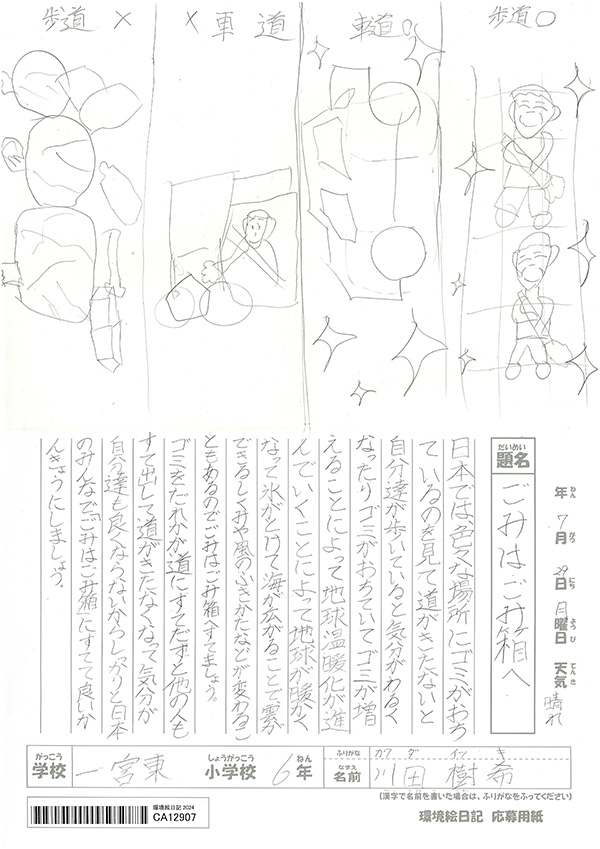 歩道 ×
× 車道
車道○
歩道○
だいめい
題名
ごみはごみ箱へ
年 7月 29日 月曜日 天気 晴れ
ねん がつ にち ようび てんき
日本では、色々な場所にゴミがおち
ているのを見て道がきたないと
自分達が歩いていると気分がわるく
なったりゴミがおちていてゴミが増
えることによって地球温暖化が進
んでいくことによって地球が暖かく
なって氷がとけて海が広がることで雲が
できるしくみや風のふきかたなどが変わるこ
ともあるのでごみはごみ箱へすてましょう。
ゴミをだれかが道にすてだすと他の人も
すて出して道がきたなくなって気分が
自分達も良くならないからしっかりと日本
のみんなでごみはごみ箱にすてて良いか
んきょうにしましょう。
がっこう しょうがっこう ねん ふりがな カワ ダ イツ キ
学校 一宮東 小学校 6年 なまえ 名前 川田 樹希
(漢字で名前を書いた場合は、ふりがなをふってください)
環境絵日記2024
CA12907
環境絵日記 応募用紙